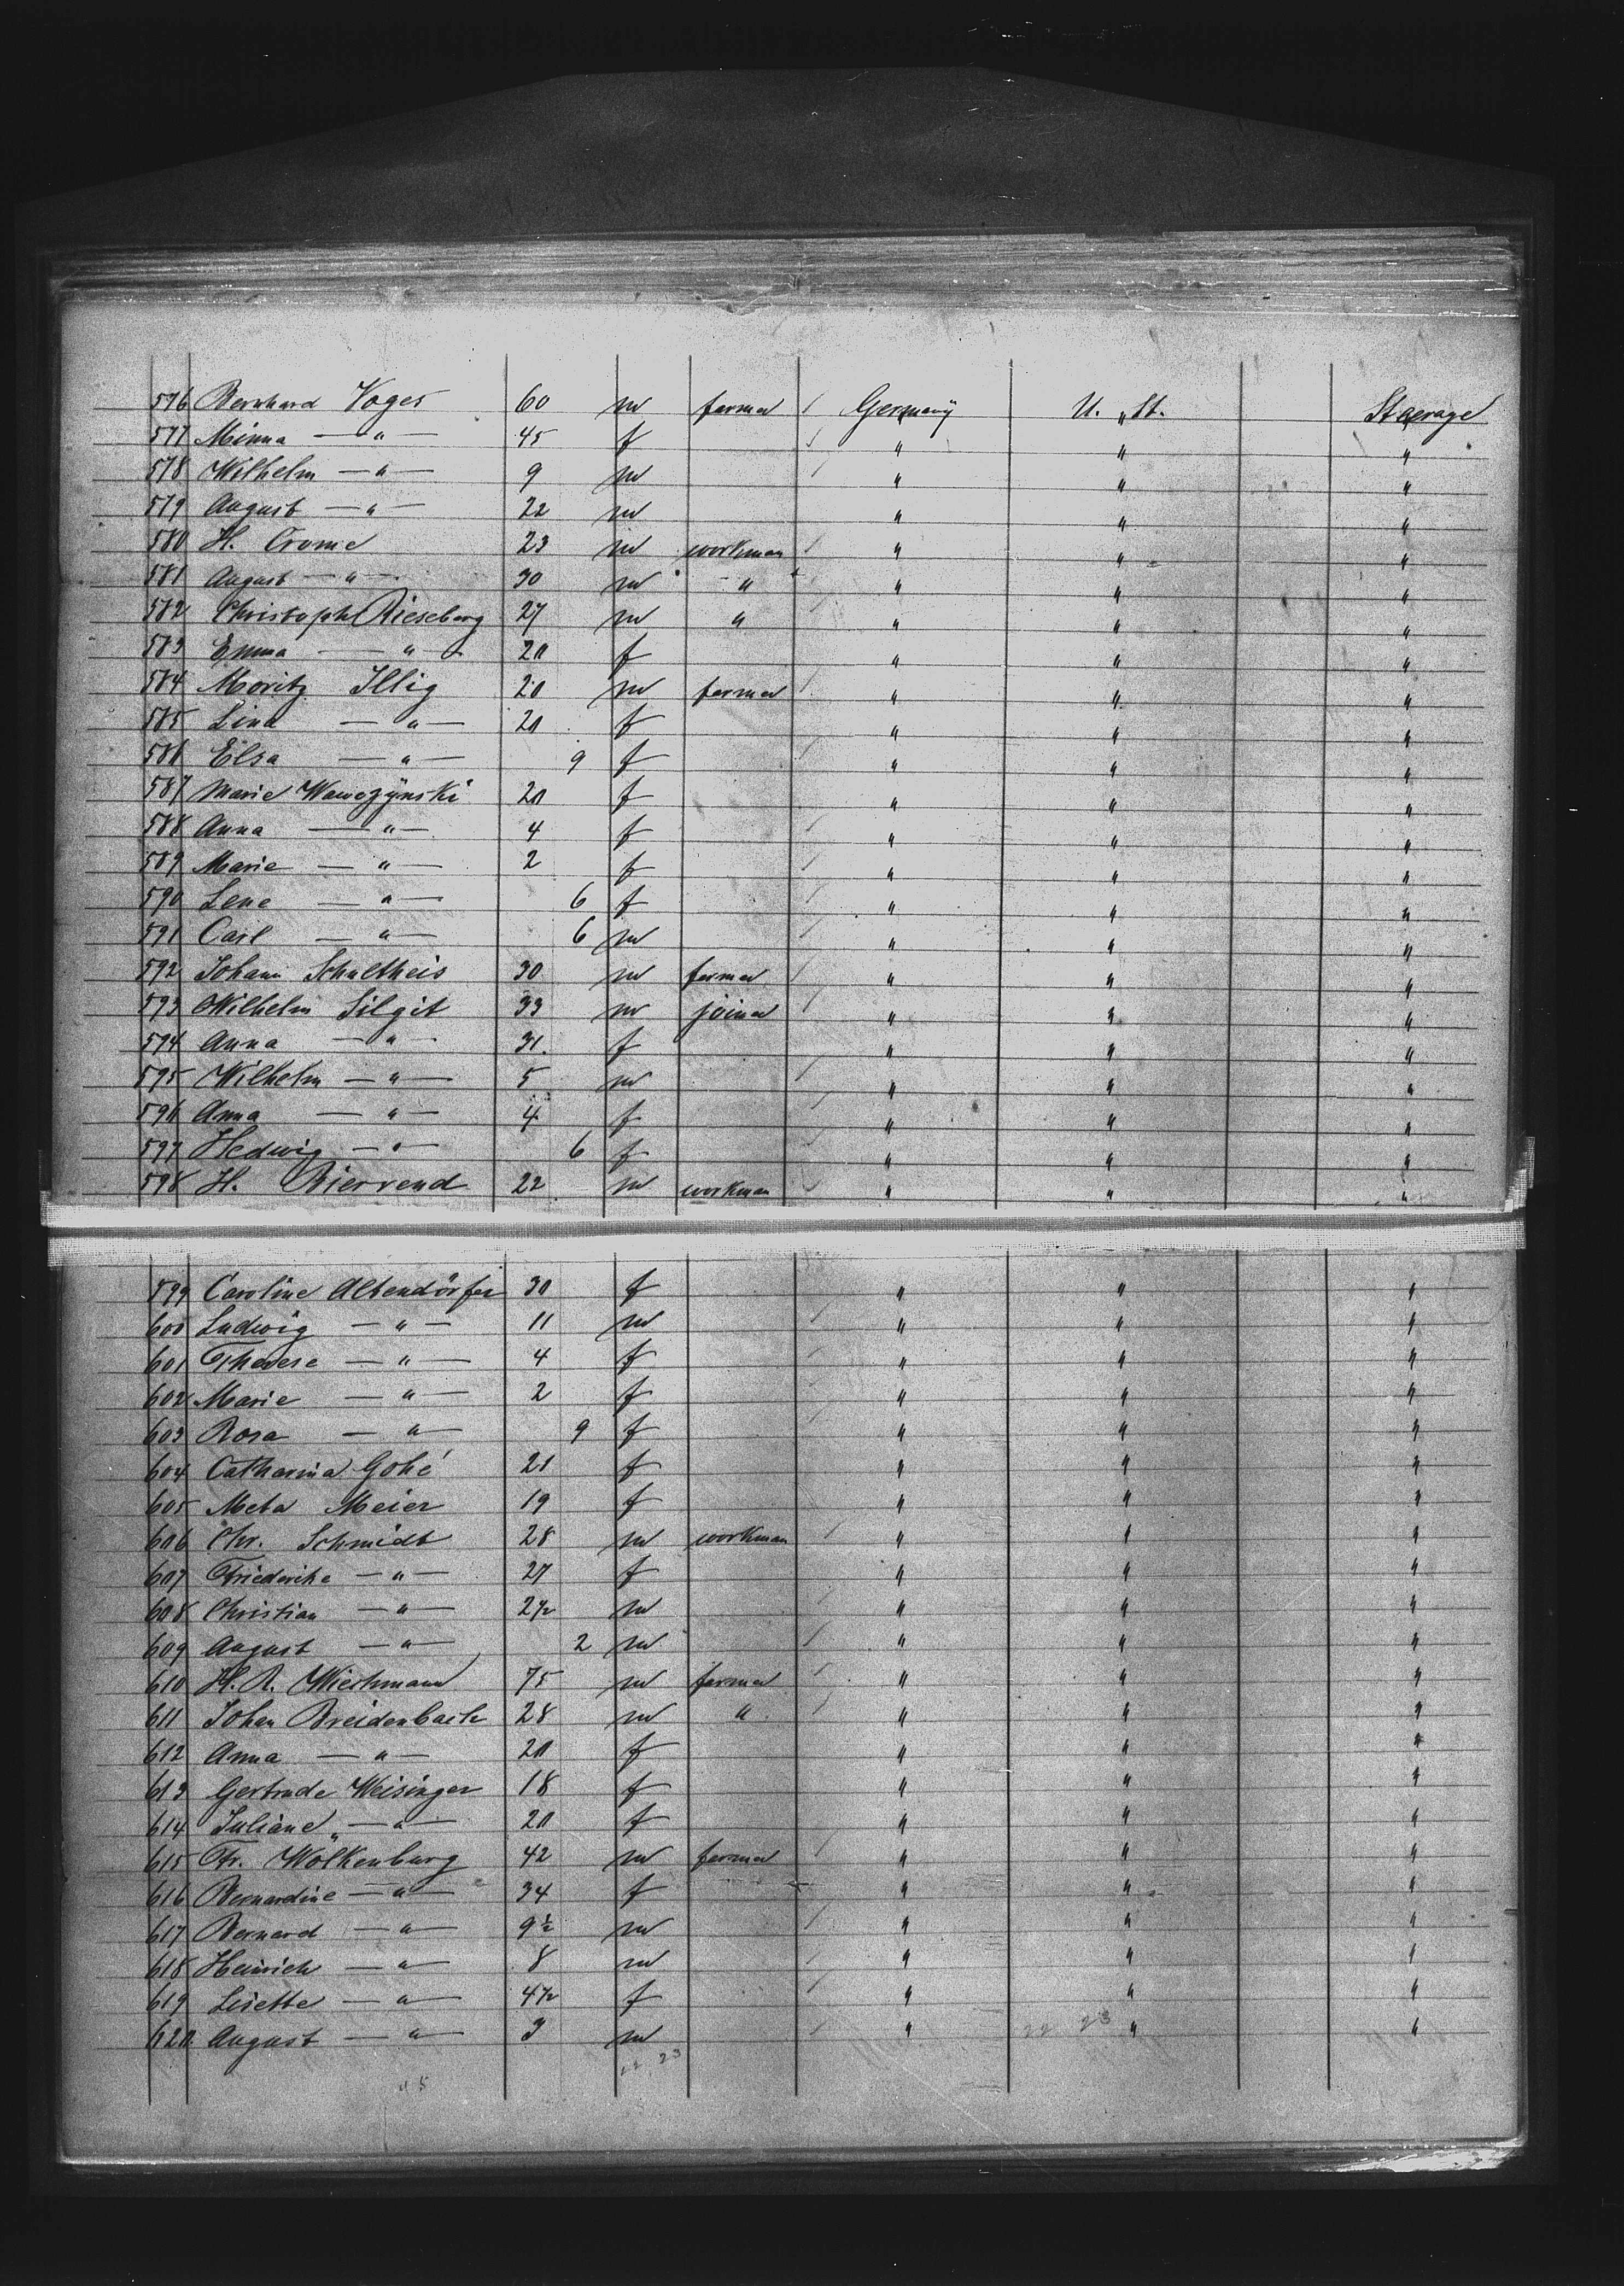 576 Bernhard Voges 60 m farmer / Germany U. St. Staerage
577 Minna — " — 45 f / " " "
578 Wilhelm — " — 9 m / " " "
579 August — " — 22 m " " "
580 H. Crome 23 m workman / " " "
581 August — " — 30 m " " " "
582 Christoph Rieseberg 27 m " / " " "
583 Emma — " — 20 f " " "
584 Moritz Illig 20 m farmer / " " "
585 Lina — " — 20 f " " "
586 Elsa — " — 9 f / " " "
587 Marie Wawczÿnski 20 f " " "
588 Anna — " — 4 f / " " "
589 Marie — " — 2 f / " " "
590 Lene — " — 6 f / " " "
591 Carl — " — 6 m / " " "
592 Johann Schultheis 30 m farmer / " " "
593 Wilhelm Silgit 33 m joiner / " " "
594 Anna — " — 31. f " " "
595 Wilhelm — " — 5 m / " " "
596 Anna — " — 4 f / " " "
597 Hedwig — " — 6 f / " " "
598 H. Bierrend 22 m workman / " " "
599 Caroline Altendörfer 30 f " " "
600 Ludwig — " — 11 m / " " "
601 Therese — " — 4 f / " " "
602 Marie — " — 2 f / " " "
603 Rosa — " — 9 f / " " "
604 Catharina Gohé 21 f " " "
605 Meta Meier 19 f " " "
606 Chr. Schmidt 28 m workman / " " "
607 Friederike — " — 27 f " " "
608 Christian — " — 2½ m / " " "
609 August — " — 2 m / " " "
610 H. R. Wiechmann 75 m farmer / " " "
611 Johan Breidenbach 28 m " / " " "
612 Anna — " — 20 f " " "
613 Gertrude Weisinger 18 f " " "
614 Juliane — " — 20 f " " "
615 Fr. Wölkenburg 42 m farmer / " " "
616 Bernardine — " — 34 f " " "
617 Bernard — " — 9½ m / " " "
618 Heinrich — " — 8 m / " " "
619 Lisette — " — 4½ f / " " "
620 August — " — 3 m / " " "
22 23